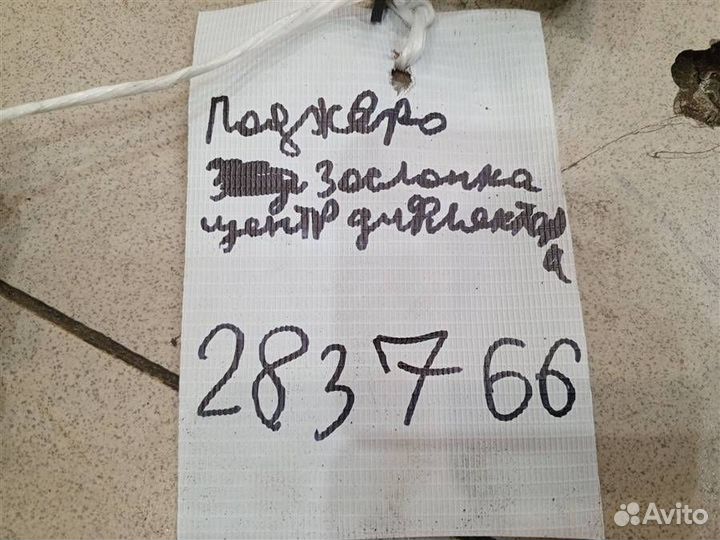 Паджеро
Заслонка
центр дифлектор
а
283766
Avito